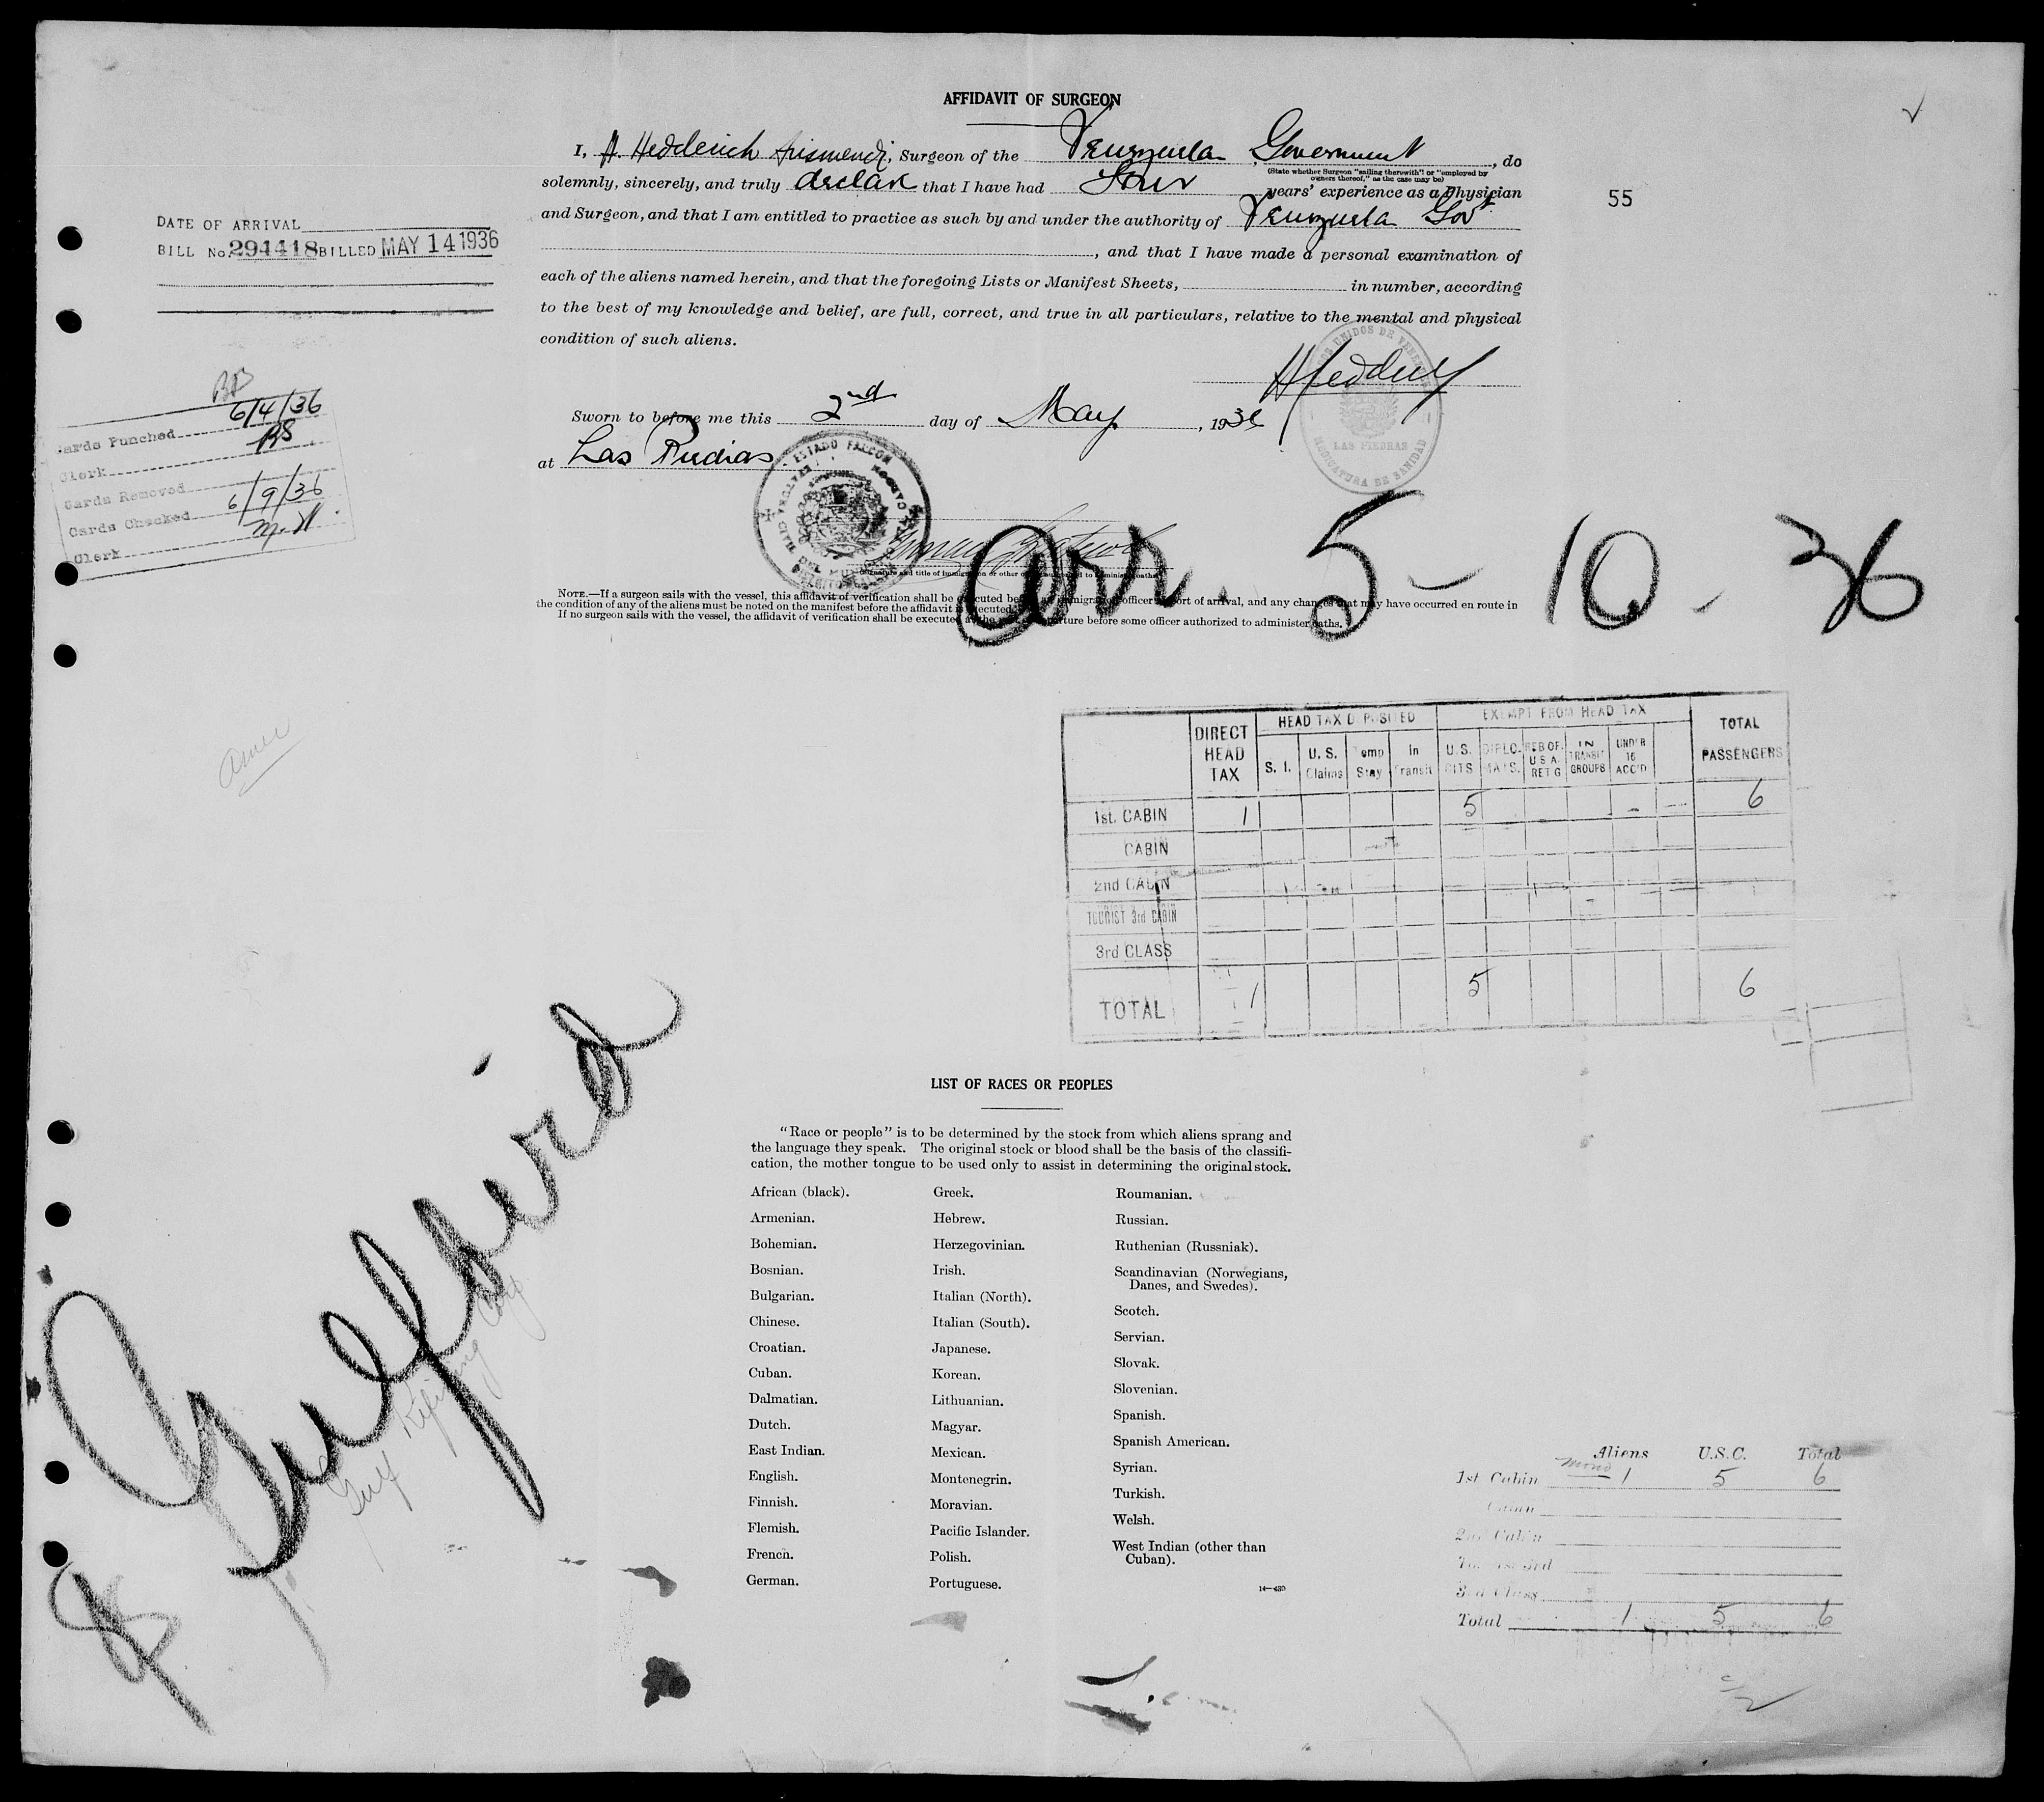 AFFIDAVIT OF SURGEON
I, A. Hedderich Arismendi, Surgeon of the Venezuela Government, do
(State whether Surgeon "sailing therewith" or "employed by
owners thereof," as the case may be)
solemnly, sincerely, and truly declare that I have had four years' experience as a Physician
and Surgeon, and that I am entitled to practice as such by and under the authority of Venezuela Gov't
, and that I have made a personal examination of
each of the aliens named herein, and that the foregoing Lists or Manifest Sheets, in number, according
to the best of my knowledge and belief, are full, correct, and true in all particulars, relative to the mental and physical
condition of such aliens.
55
DATE OF ARRIVAL
BILL No. 294418 BILLED MAY 14 1936
UNIDOS DE
LAS PIEDRAS
MEDICATURA DE SANIDAD
Sworn to before me this 2nd day of May, 1936
at Las Piedras
ESTADO FALCON
6/4/36
Cards Punched
BS
Clerk
Cards Removed
Cards Checked 6/9/36
M.H.
Clerk
Arr. 5-10-36
NOTE.—If a surgeon sails with the vessel, this affidavit of verification shall be executed before an immigration officer at port of arrival, and any changes that may have occurred en route in
the condition of any of the aliens must be noted on the manifest before the affidavit is executed.
If no surgeon sails with the vessel, the affidavit of verification shall be executed at the port of departure before some officer authorized to administer oaths.
Amer
DIRECT HEAD TAX
HEAD TAX DEPOSITED
EXEMPT FROM HEAD TAX
TOTAL PASSENGERS
S. I. U. S. Claims Temp Stay In Transit U.S. CITS DIPLOMATS. RES OF U.S.A. RET'G IN TRANSIT GROUPS UNDER 16 ACC'D
1st. CABIN 1 5 6
CABIN
2nd CABIN
TOURIST 3rd CABIN
3rd CLASS
TOTAL 1 5 6
Gulfbird
Gulf Refining Corp
LIST OF RACES OR PEOPLES
"Race or people" is to be determined by the stock from which aliens sprang and
the language they speak. The original stock or blood shall be the basis of the classifi-
cation, the mother tongue to be used only to assist in determining the original stock.
African (black).
Armenian.
Bohemian.
Bosnian.
Bulgarian.
Chinese.
Croatian.
Cuban.
Dalmatian.
Dutch.
East Indian.
English.
Finnish.
Flemish.
French.
German.
Greek.
Hebrew.
Herzegovinian.
Irish.
Italian (North).
Italian (South).
Japanese.
Korean.
Lithuanian.
Magyar.
Mexican.
Montenegrin.
Moravian.
Pacific Islander.
Polish.
Portuguese.
Roumanian.
Russian.
Ruthenian (Russniak).
Scandinavian (Norwegians,
Danes, and Swedes).
Scotch.
Servian.
Slovak.
Slovenian.
Spanish.
Spanish American.
Syrian.
Turkish.
Welsh.
West Indian (other than
Cuban).
14—480
Aliens U.S.C. Total
1st Cabin 1 5 6
Cabin
2nd Cabin
3rd Class
Total 1 5 6